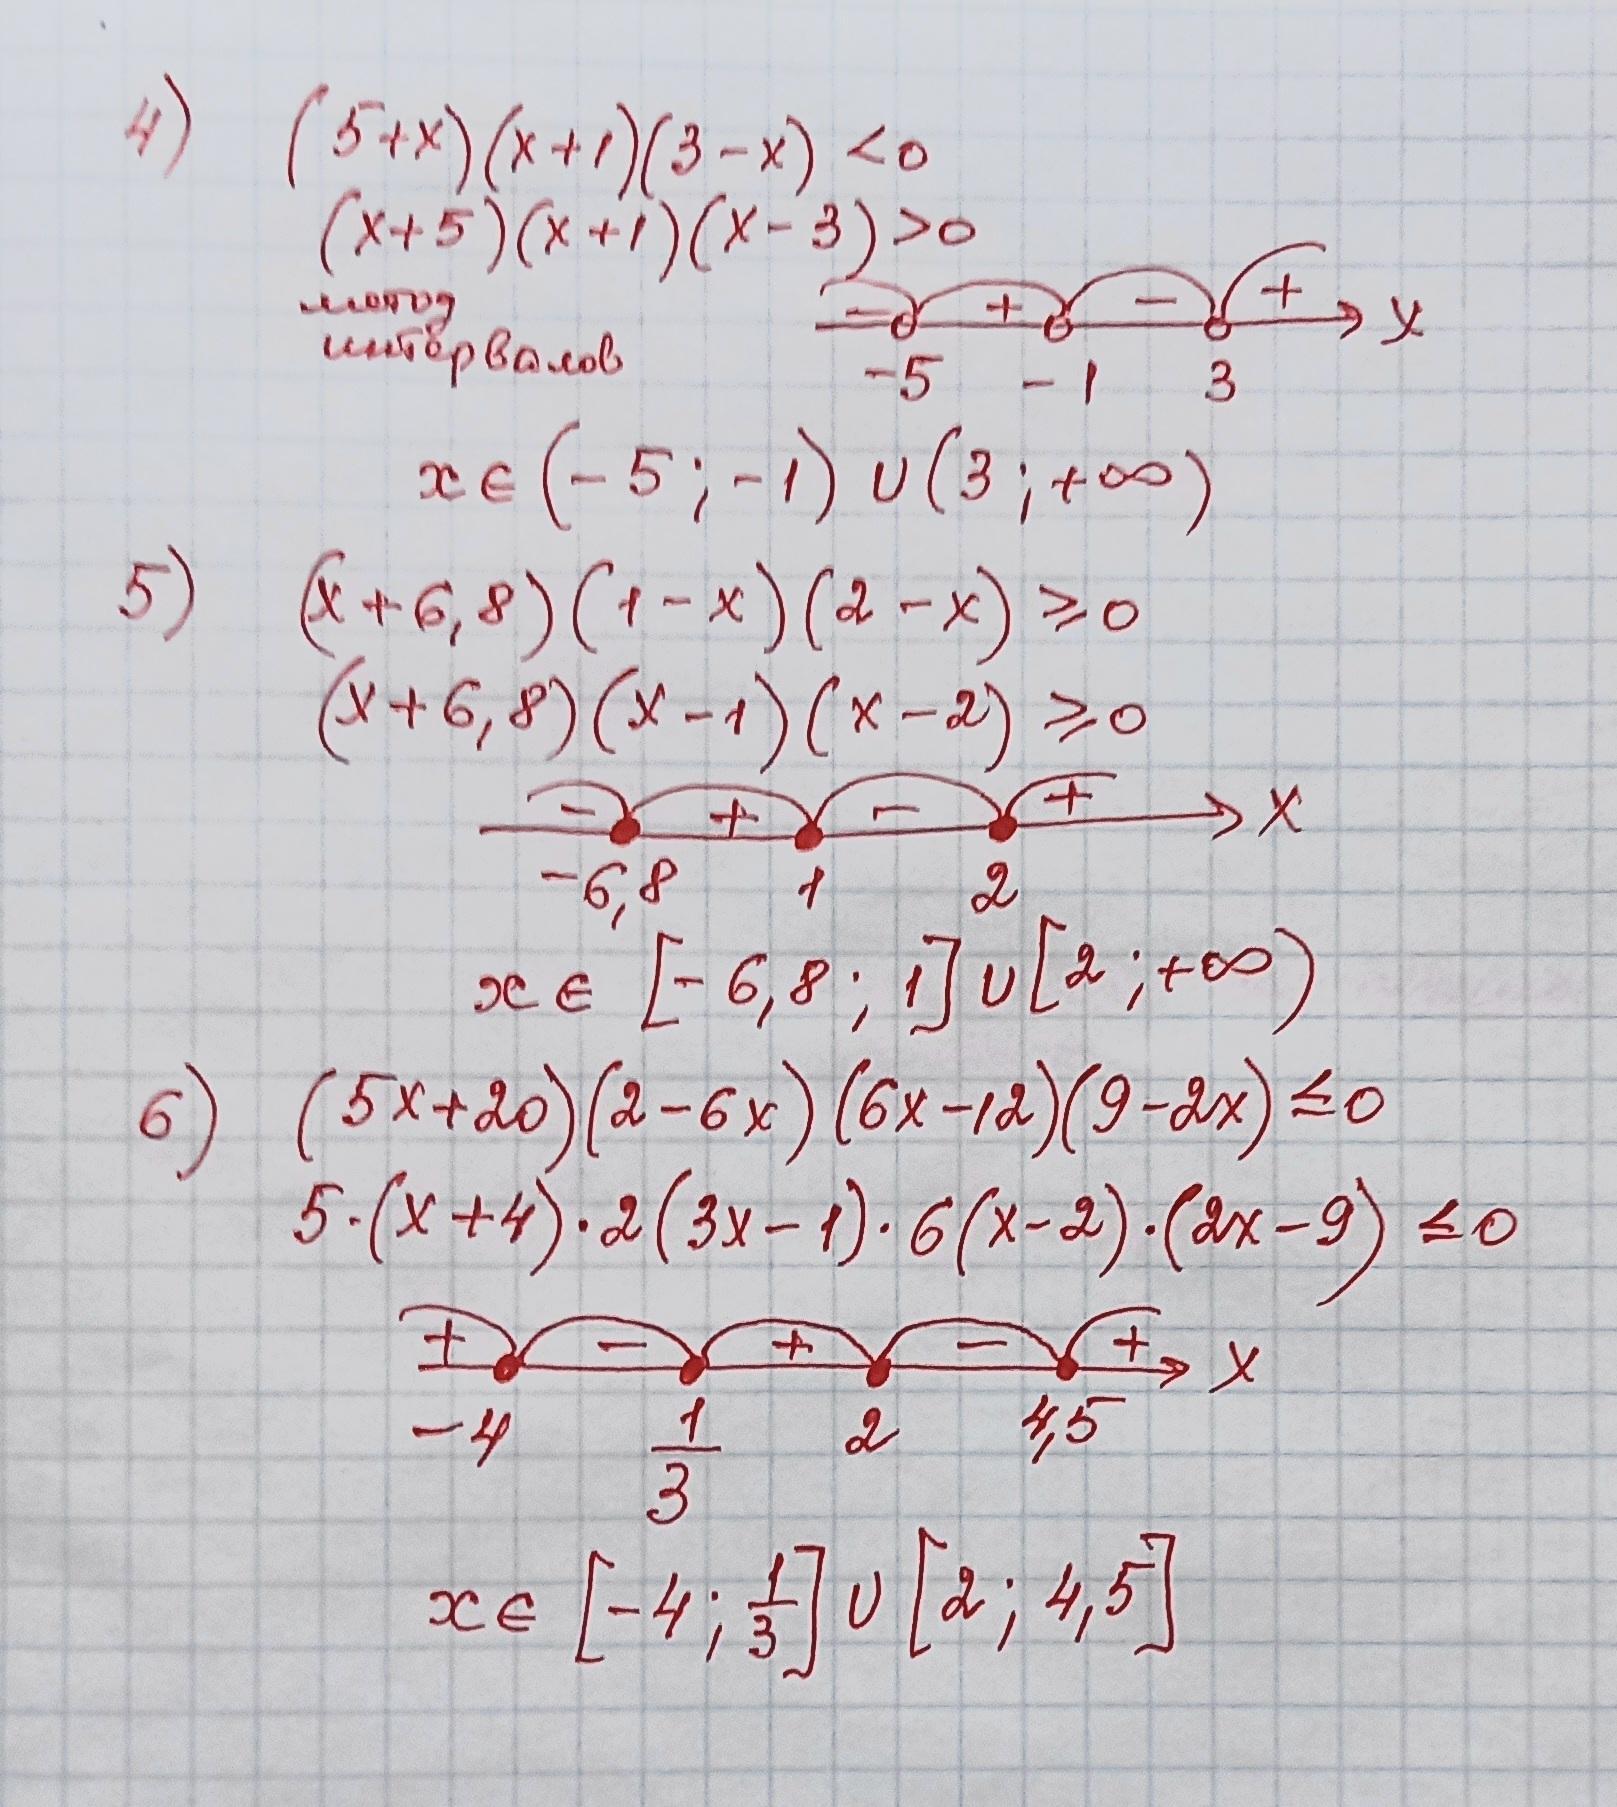 4) (5+x)(x+1)(3-x) <0
(x+5)(x+1)(x-3)>0
метод
интервалов
- + - + x
-5 -1 3
x∈(-5;-1)∪(3;+∞)
5) (x+6,8)(1-x)(2-x)≥0
(x+6,8)(x-1)(x-2)≥0
- + - + x
-6,8 1 2
x∈[-6,8;1]∪[2;+∞)
6) (5x+20)(2-6x)(6x-12)(9-2x)≤0
5·(x+4)·2(3x-1)·6(x-2)·(2x-9)≤0
+ - + - + x
-4 1/3 2 4,5
x∈[-4;1/3]∪[2;4,5]